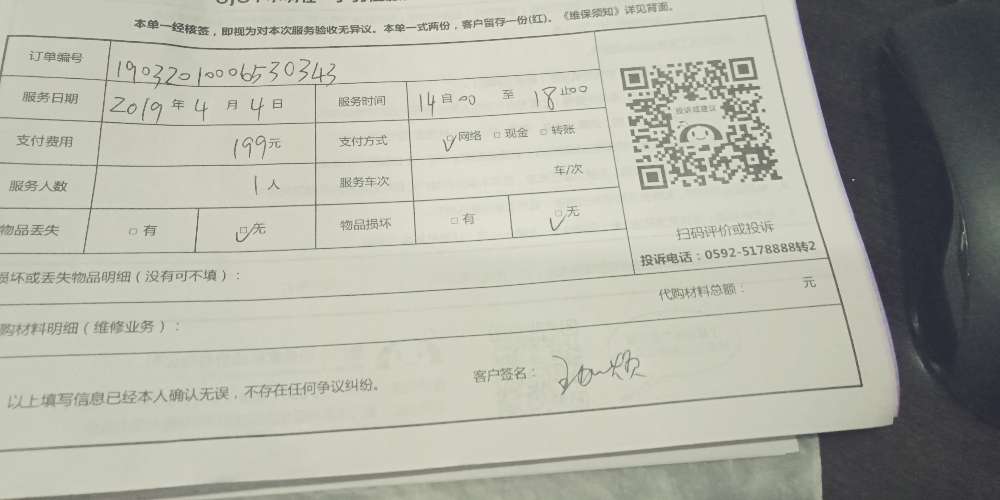 本单一经核签，即视为对本次服务验收无异议。本单一式两份，客户留存一份(红)。《维保须知》详见背面。
订单编号 19032010006530343
服务日期 2019 年 4 月 4 日 服务时间 14 自 00 至 18 止00
支付费用 199元 支付方式 ☑网络 □现金 □转账
服务人数 1人 服务车次 车/次
物品丢失 □有 ☑无 物品损坏 □有 ☑无
投诉或建议
扫码评价或投诉
投诉电话：0592-5178888转2
损坏或丢失物品明细（没有可不填）：
代购材料总额： 元
购材料明细（维修业务）：
以上填写信息已经本人确认无误，不存在任何争议纠纷。
客户签名：